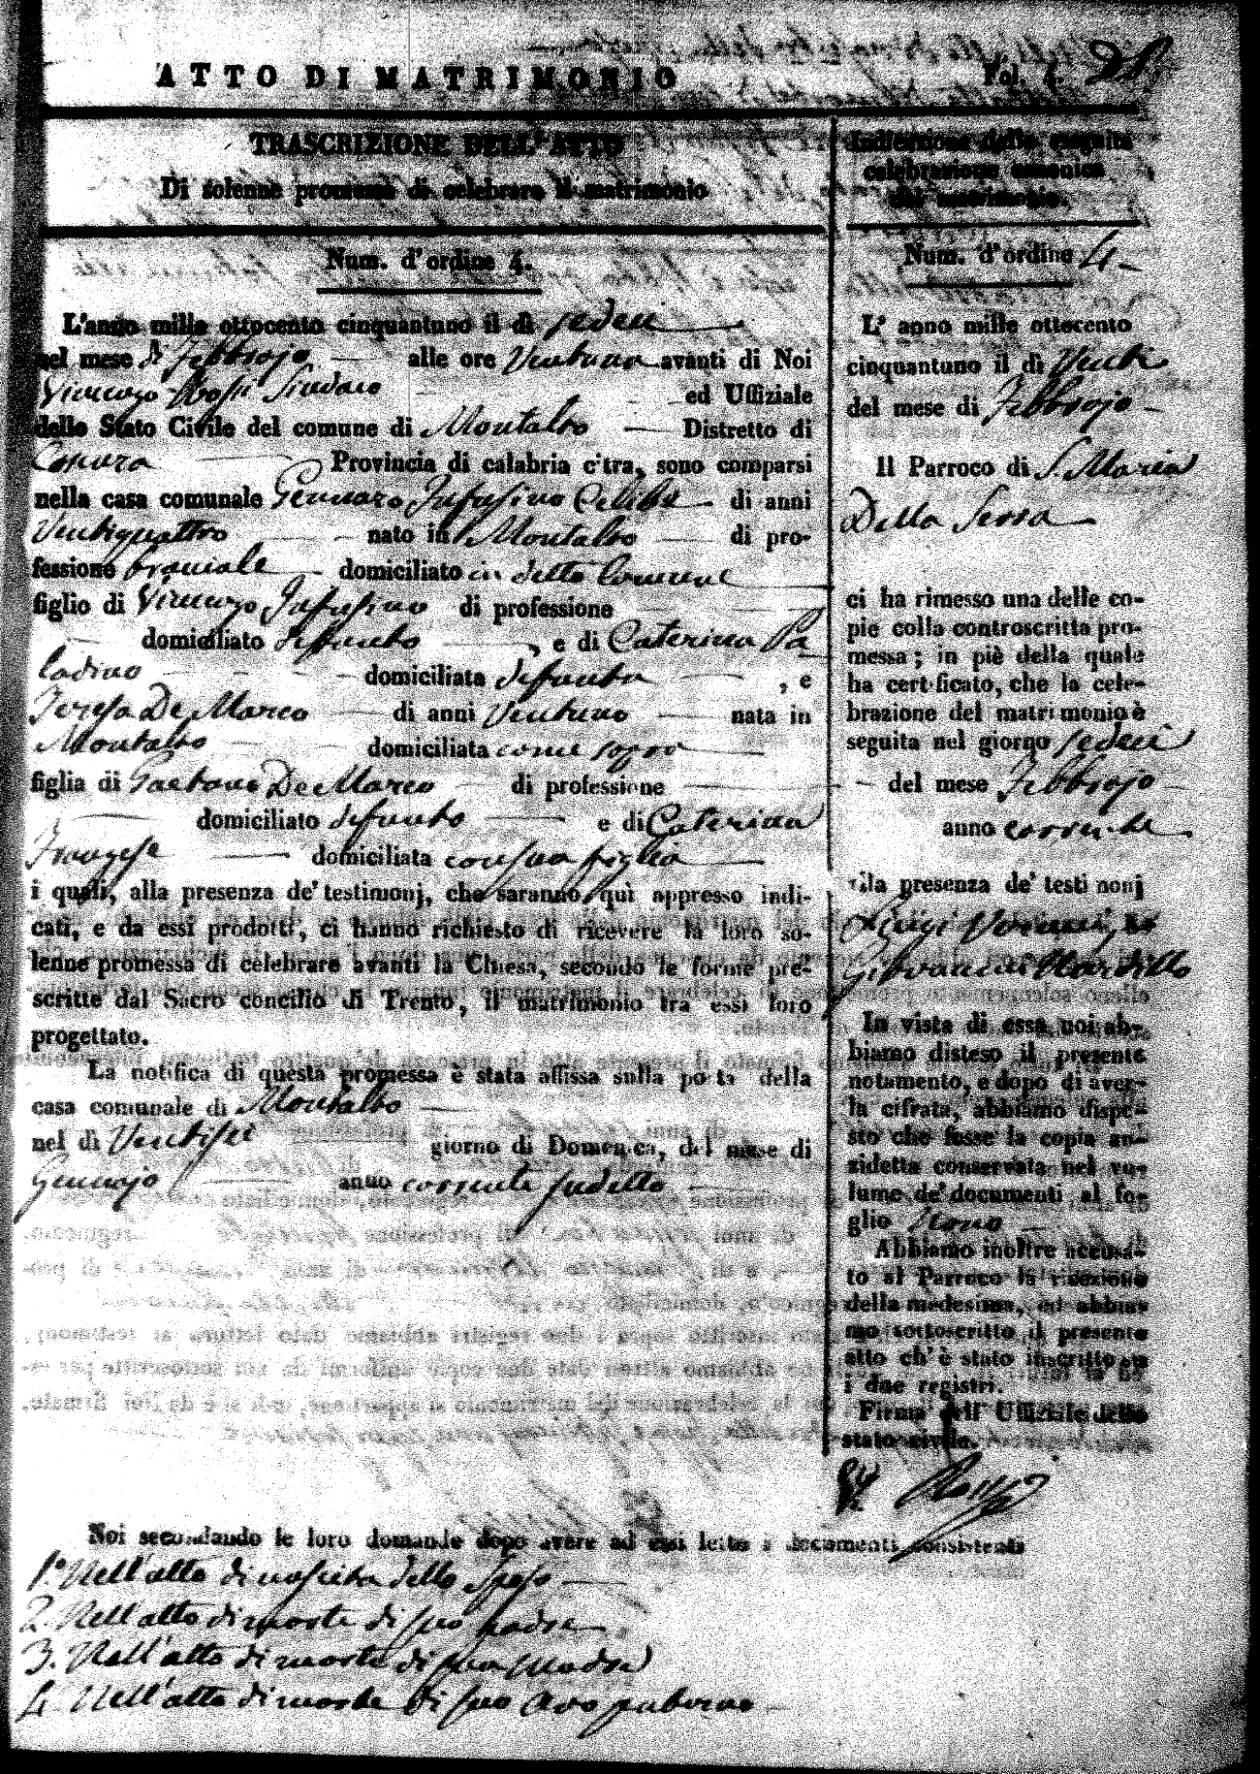 ATTO DI MATRIMONIO
Fol. 4.
TRASCRIZIONE DELL'ATTO
Di solenne promessa di celebrare il matrimonio
Num. d'ordine 4.
L'anno mille ottocento cinquantuno il dì sedeci
nel mese di Febbrajo alle ore Ventuna avanti di Noi
Vincenzo Rossi Sindaco ed Uffiziale
dello Stato Civile del comune di Montalto Distretto di
Cosenza Provincia di calabria citra, sono comparsi
nella casa comunale Gennaro Infusino Celibe di anni
Ventiquattro nato in Montalto di pro-
fessione braciale domiciliato in detto Comune
figlio di Vincenzo Infusino di professione
domiciliato defunto , e di Caterina Pa
ladino domiciliata defunta , e
Teresa De Marco di anni Ventuno nata in
Montalto domiciliata come sopra
figlia di Gaetano De Marco di professione
domiciliato defunto e di Caterina
Franzese domiciliata con sua figlia
i quali, alla presenza de' testimonj, che saranno quì appresso indi-
cati, e da essi prodotti, ci hanno richiesto di ricevere la loro so-
lenne promessa di celebrare avanti la Chiesa, secondo le forme pre-
scritte dal Sacro concilio di Trento, il matrimonio tra essi loro
progettato.
La notifica di questa promessa è stata affissa sulla porta della
casa comunale di Montalto
nel dì Ventisei giorno di Domenica, del mese di
Gennajo anno corrente sudetto
Indicazione della seguita
celebrazione canonica
del matrimonio.
Num. d'ordine 4
L' anno mille ottocento
cinquantuno il dì Venti
del mese di Febbrajo
Il Parroco di S. Maria
Della Serra
ci ha rimesso una delle co-
pie colla controscritta pro-
messa; in piè della quale
ha certificato, che la cele-
brazione del matrimonio è
seguita nel giorno sedeci
del mese Febbrajo
anno corrente
alla presenza de' testimonj
Luigi
Giovanni Nardillo
In vista di essa noi ab-
biamo disteso il presente
notamento, e dopo di aver-
la cifrata, abbiamo dispo-
sto che fosse la copia an-
zidetta conservata nel vo-
lume de' documenti al fo-
glio Nono
Abbiamo inoltre accusa-
to al Parroco la ricezione
della medesima, ed abbia-
mo sottoscritto il presente
atto ch'è stato inscritto su
i due registri.
Firma dell' Uffiziale dello
stato civile.
Rossi
Noi secondando le loro domande dopo avere ad essi letto i documenti consistenti
1.º Nell'atto di nascita dello Sposo
2. Nell'atto di morte di suo padre
3. Nell'atto di morte di sua Madre
4. Nell'atto di morte di suo Avo paterno